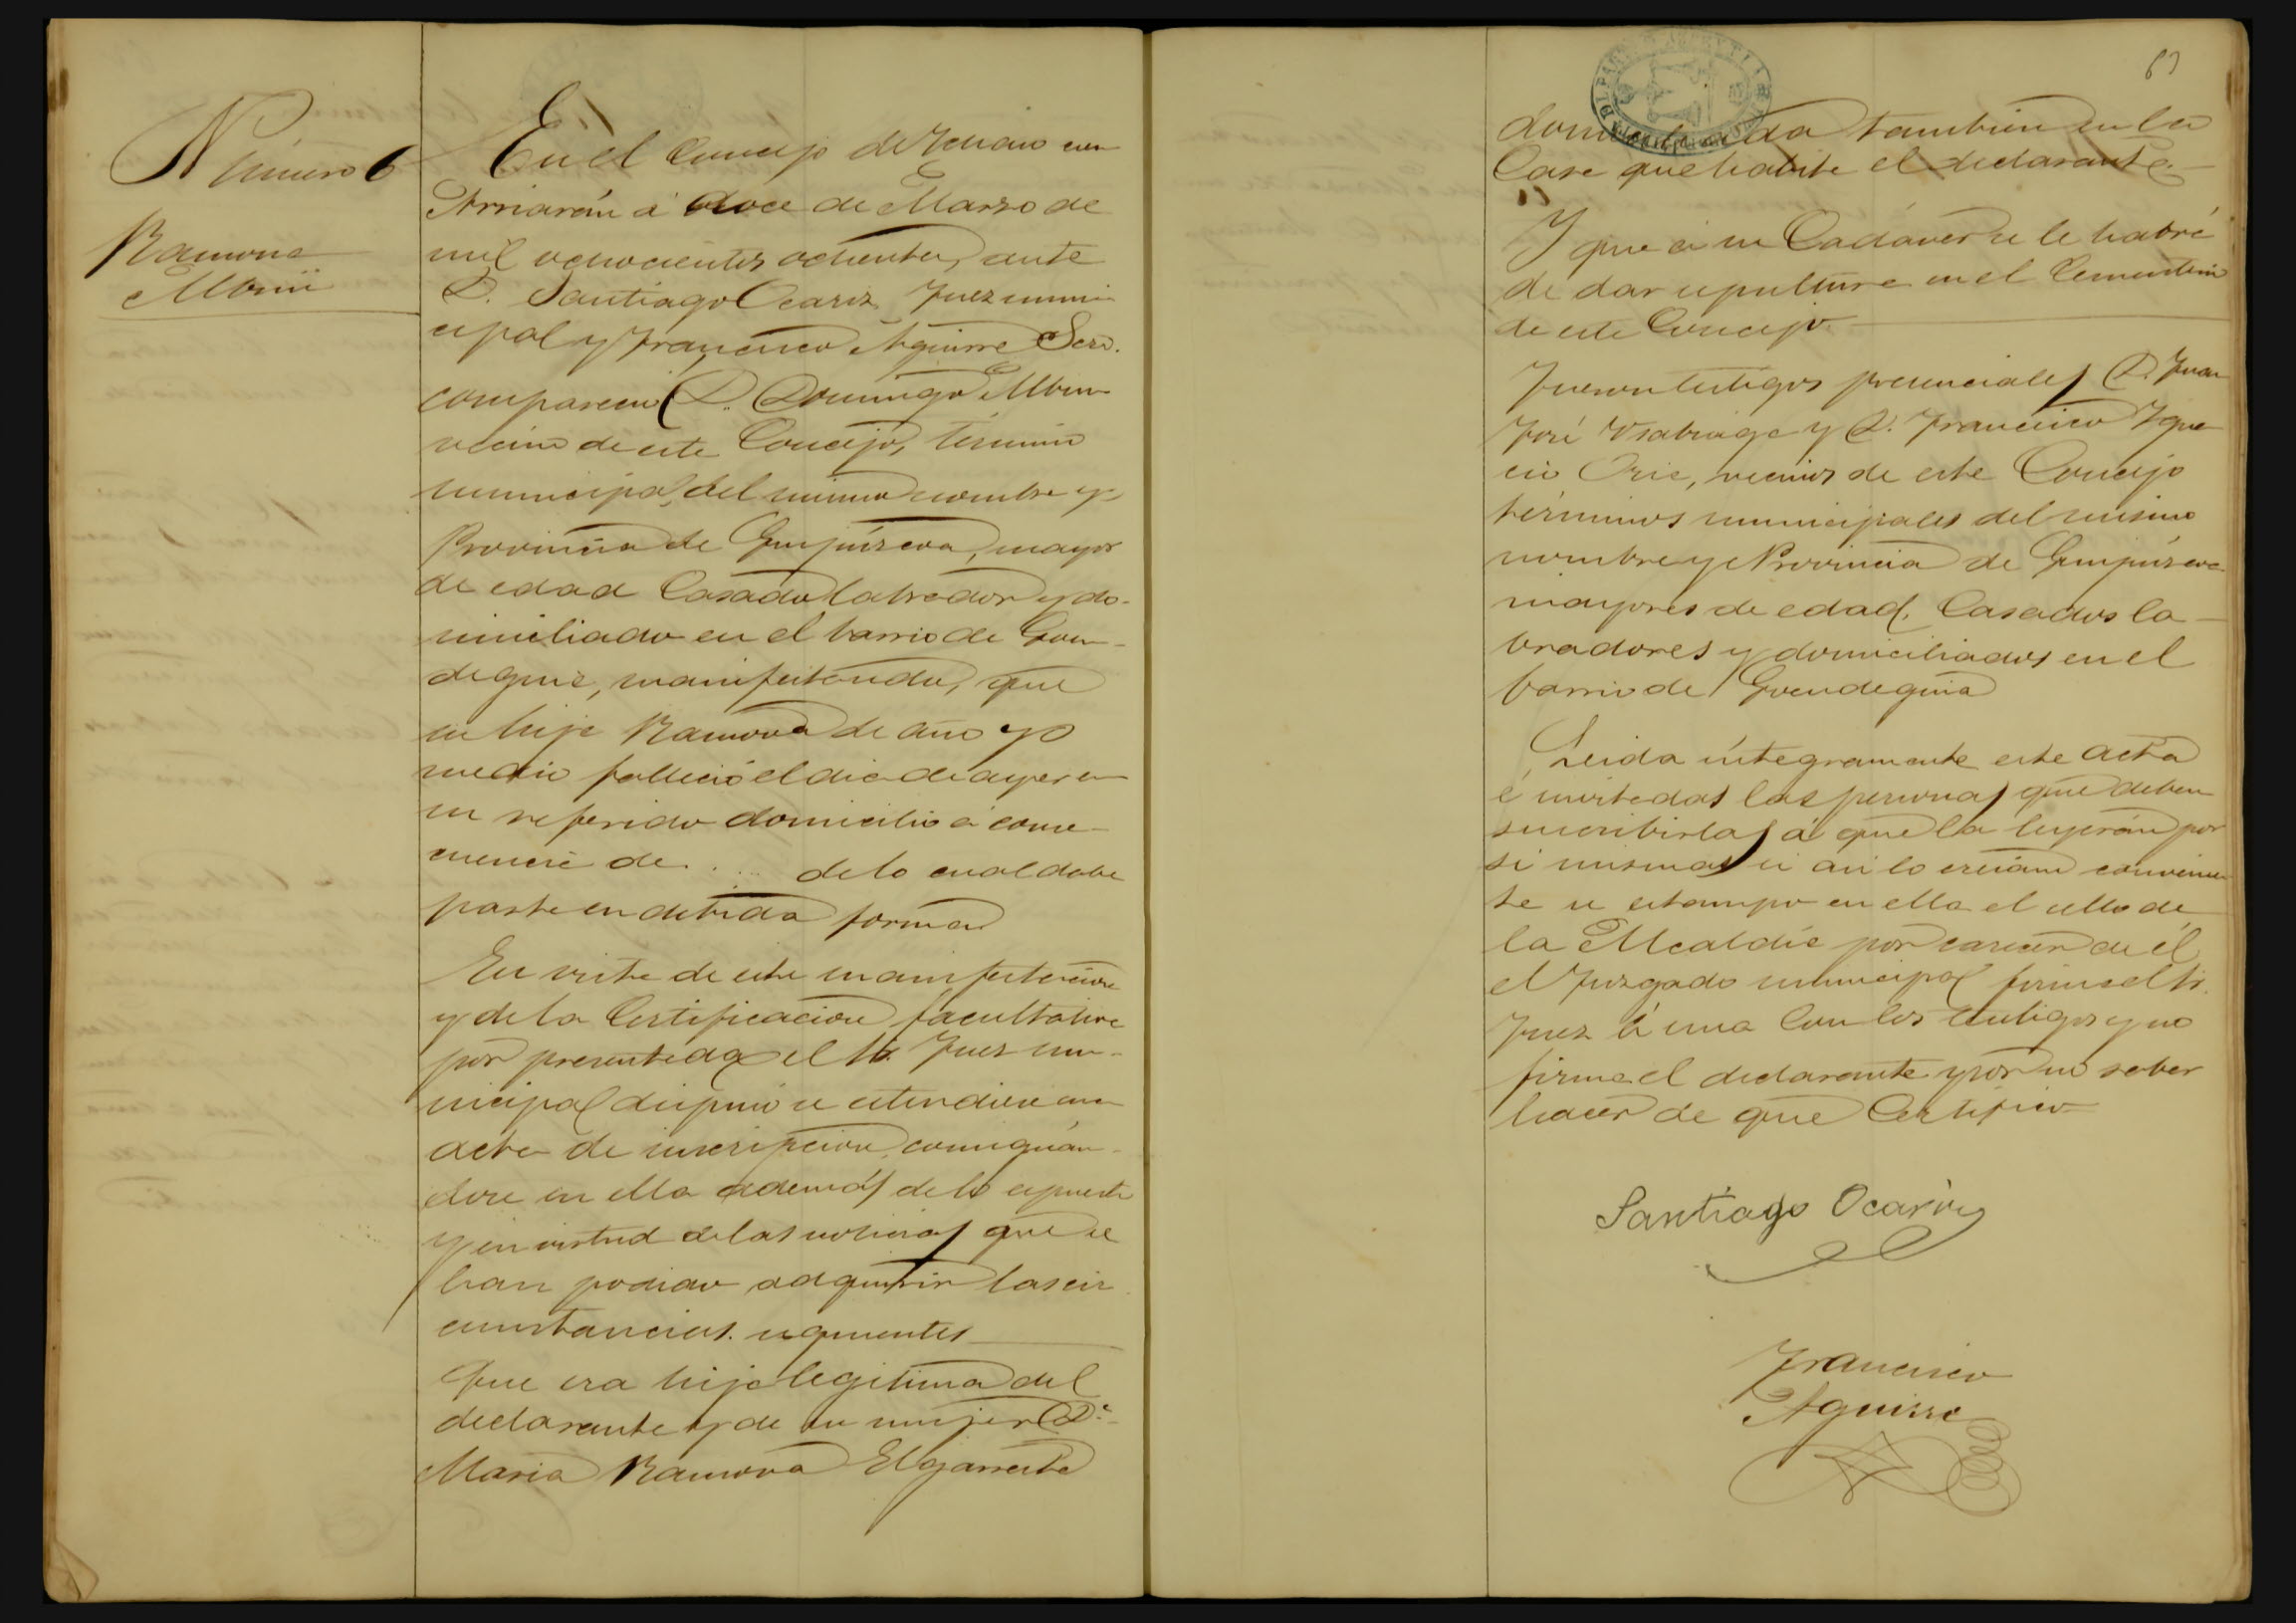 Número 6
Ramona
Albisu
En el Concejo de Ichaso en
Arriarán á doce de Marzo de
mil ochocientos ochenta, ante
D. Santiago Ocariz Juez muni-
cipal y Francisco Aguirre Secr.
compareció D. Domingo
vecino de este Concejo, término
municipal, del mismo nombre y
Provincia de Guipúzcoa, mayor
de edad Casado labrador y do-
miciliado en el barrio de Goen-
deguia, manifestando, que
su hija Ramona de año y
medio falleció el dia de ayer en
su referido domicilio á conse-
cuencia de .... de lo cual daba
parte en debida forma
En vista de esta manifestacion
y de la Certificacion facultativa
por presentada el Sr. Juez mu-
nicipal dispuso se estendiera una
acta de inscripcion, consignán-
dose en ella además de lo expuesto
y en virtud de las noticias que se
han podido adquirir las cir
cunstancias siguientes
Que era hija legitima del
declarante y de su mujer D.ª
Maria Ramona Elgarresta
63
domiciliada tambien en la
Casa que habita el declarante.
Y que á su Cadáver se le habrá
de dar sepultura en el Cementerio
de este Concejo
Fueron testigos presenciales D. Juan
José Usabiaga y D. Francisco Igna
cio Oria, vecinos de este Concejo
términos municipales del mismo
nombre y Provincia de Guipúzcoa
mayores de edad, Casados la
bradores y domiciliados en el
barrio de Goendeguia
Leida íntegramente este acta
é invitadas las personas que deben
suscribirlas á que la leyerán por
si mismas si asi lo creián convenien
te se estampo en ella el sello de
la Alcaldia por carecer de él
el Juzgado municipal firma el Sr.
Juez á una Con los testigos y no
firma el declarante y por no saber
hacer de que Certifico
Santiago Ocariz
Francisco
Aguirre